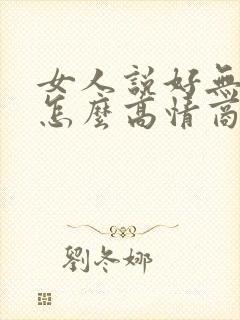 女人説好無
怎麼高情商
劉冬娜